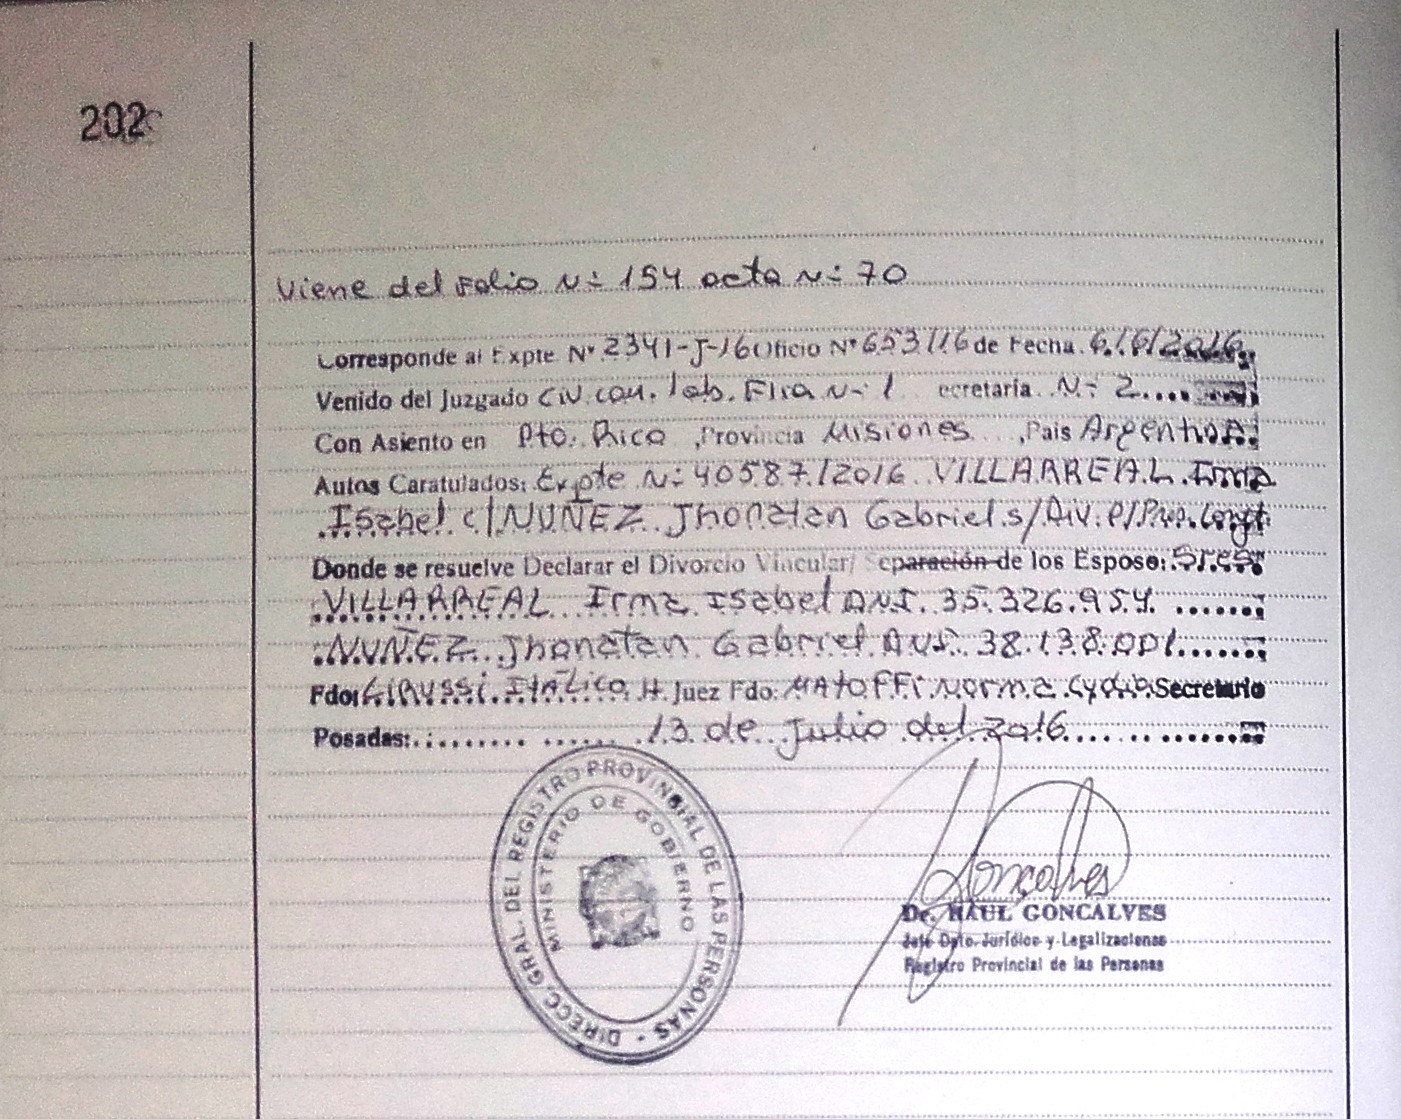 202
Viene del Folio N: 154 acta N: 70
Corresponde al Expte Nº 2341-J-16 Oficio Nº 653/16 de Fecha 6/6/2016
Venido del Juzgado Civ. com. lab. Flia N: 1 ecretaría N: 2
Con Asiento en Pto. Rico, Provincia Misiones, País Argentina
Autos Caratulados: Expte N: 40587/2016 VILLARREAL Irma
Isabel c/ NUÑEZ Jhonatan Gabriel s/ Div. p/
Donde se resuelve Declarar el Divorcio Vincular/ Separación de los Esposo: Sres
VILLARREAL Irma Isabel DNI. 35.326.954
NUÑEZ Jhonatan Gabriel DNI. 38.138.001
Fdo: Italico H. Juez Fdo: Norma Secretario
Posadas: 13 de Julio del 2016
DIRECC. GRAL. DEL REGISTRO PROVINCIAL DE LAS PERSONAS -
MINISTERIO DE GOBIERNO
Goncalves
Dr. RAUL GONCALVES
Jefe Dpto. Jurídico y Legalizaciones
Registro Provincial de las Personas